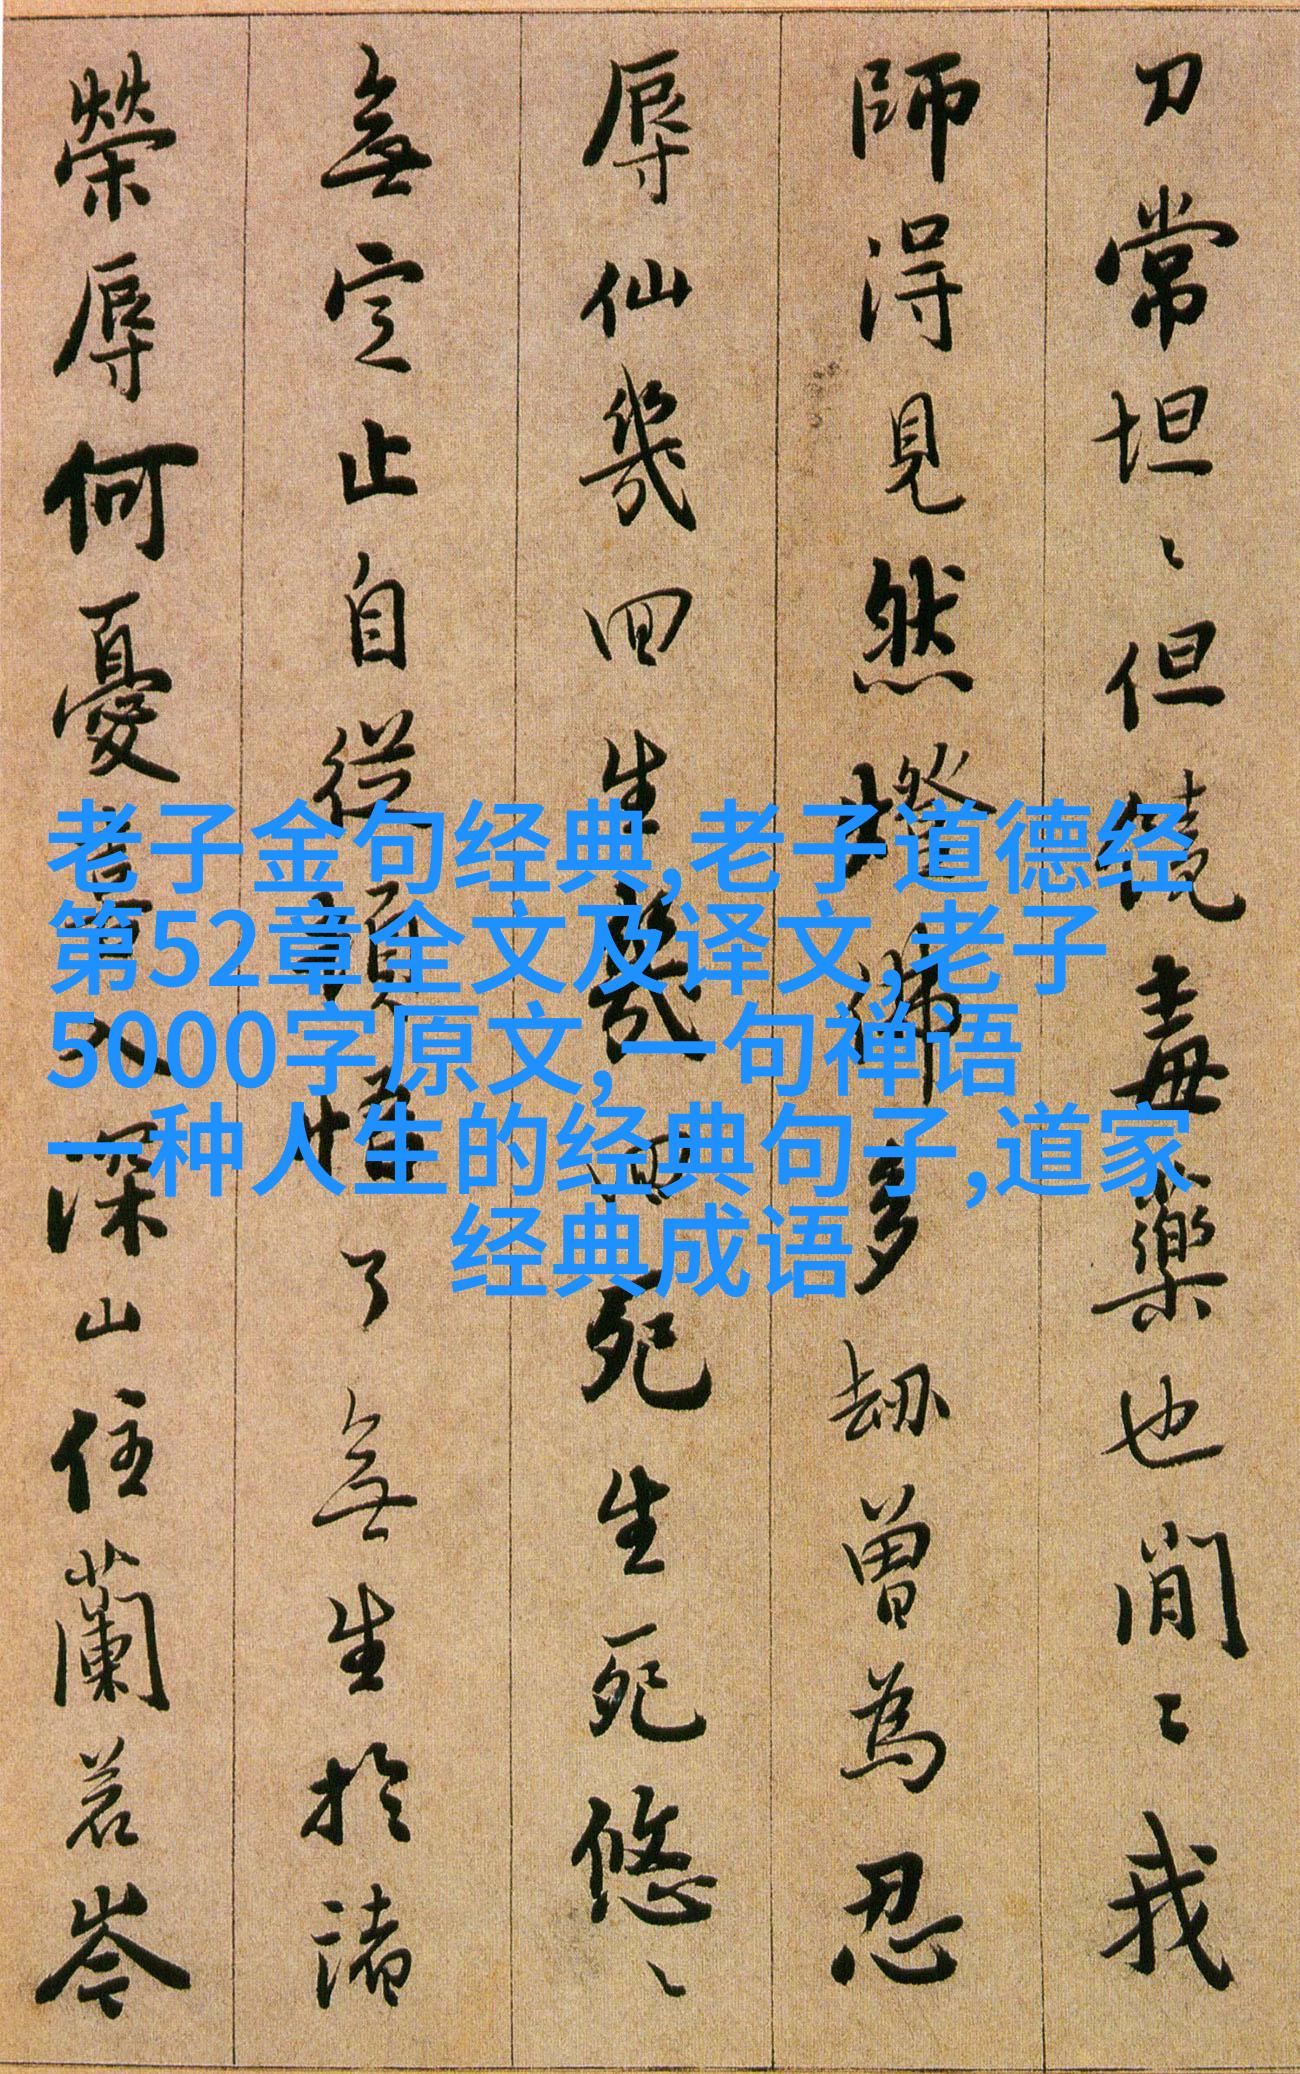 刀常坦〻但饒毒藥也閒〻我
師得見然燈佛多劫曾為忍
辱仙幾回生幾回死生死悠〻
無定止自從頓悟了無生於諸
榮辱何憂喜入深山住蘭若岑
老子金句经典,老子道德经
第52章全文及译文,老子
5000字原文,一句禅语
一种人生的经典句子,道家
经典成语